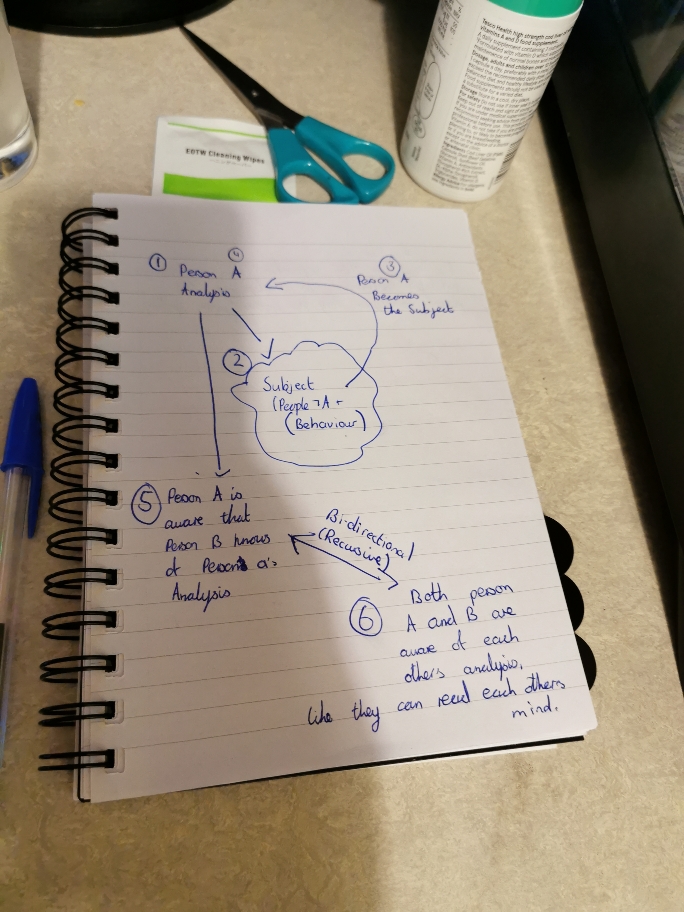 Tesco Health high strength cod liver
vitamins A and D food supplement.
EOTW Cleaning Wipes
① Person A ④
Analysis
③
Person A
Becomes
the Subject
②
Subject
(People ¬A +
(Behaviour)
⑤ Person A is
aware that
Person B knows
of Person a's
Analysis
Bi-directional
(Recursive)
⑥ Both person
A and B are
aware of each
others analysis,
like they can read each others
mind.